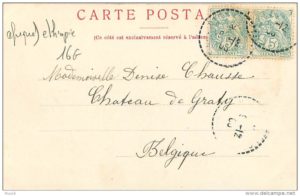 CARTE POSTA
(Ce côté est exclusivement réservé à l'adresse
afrique) ethiopie
166
Mademoiselle Denise Chausse
Chateau de Graty
Belgique